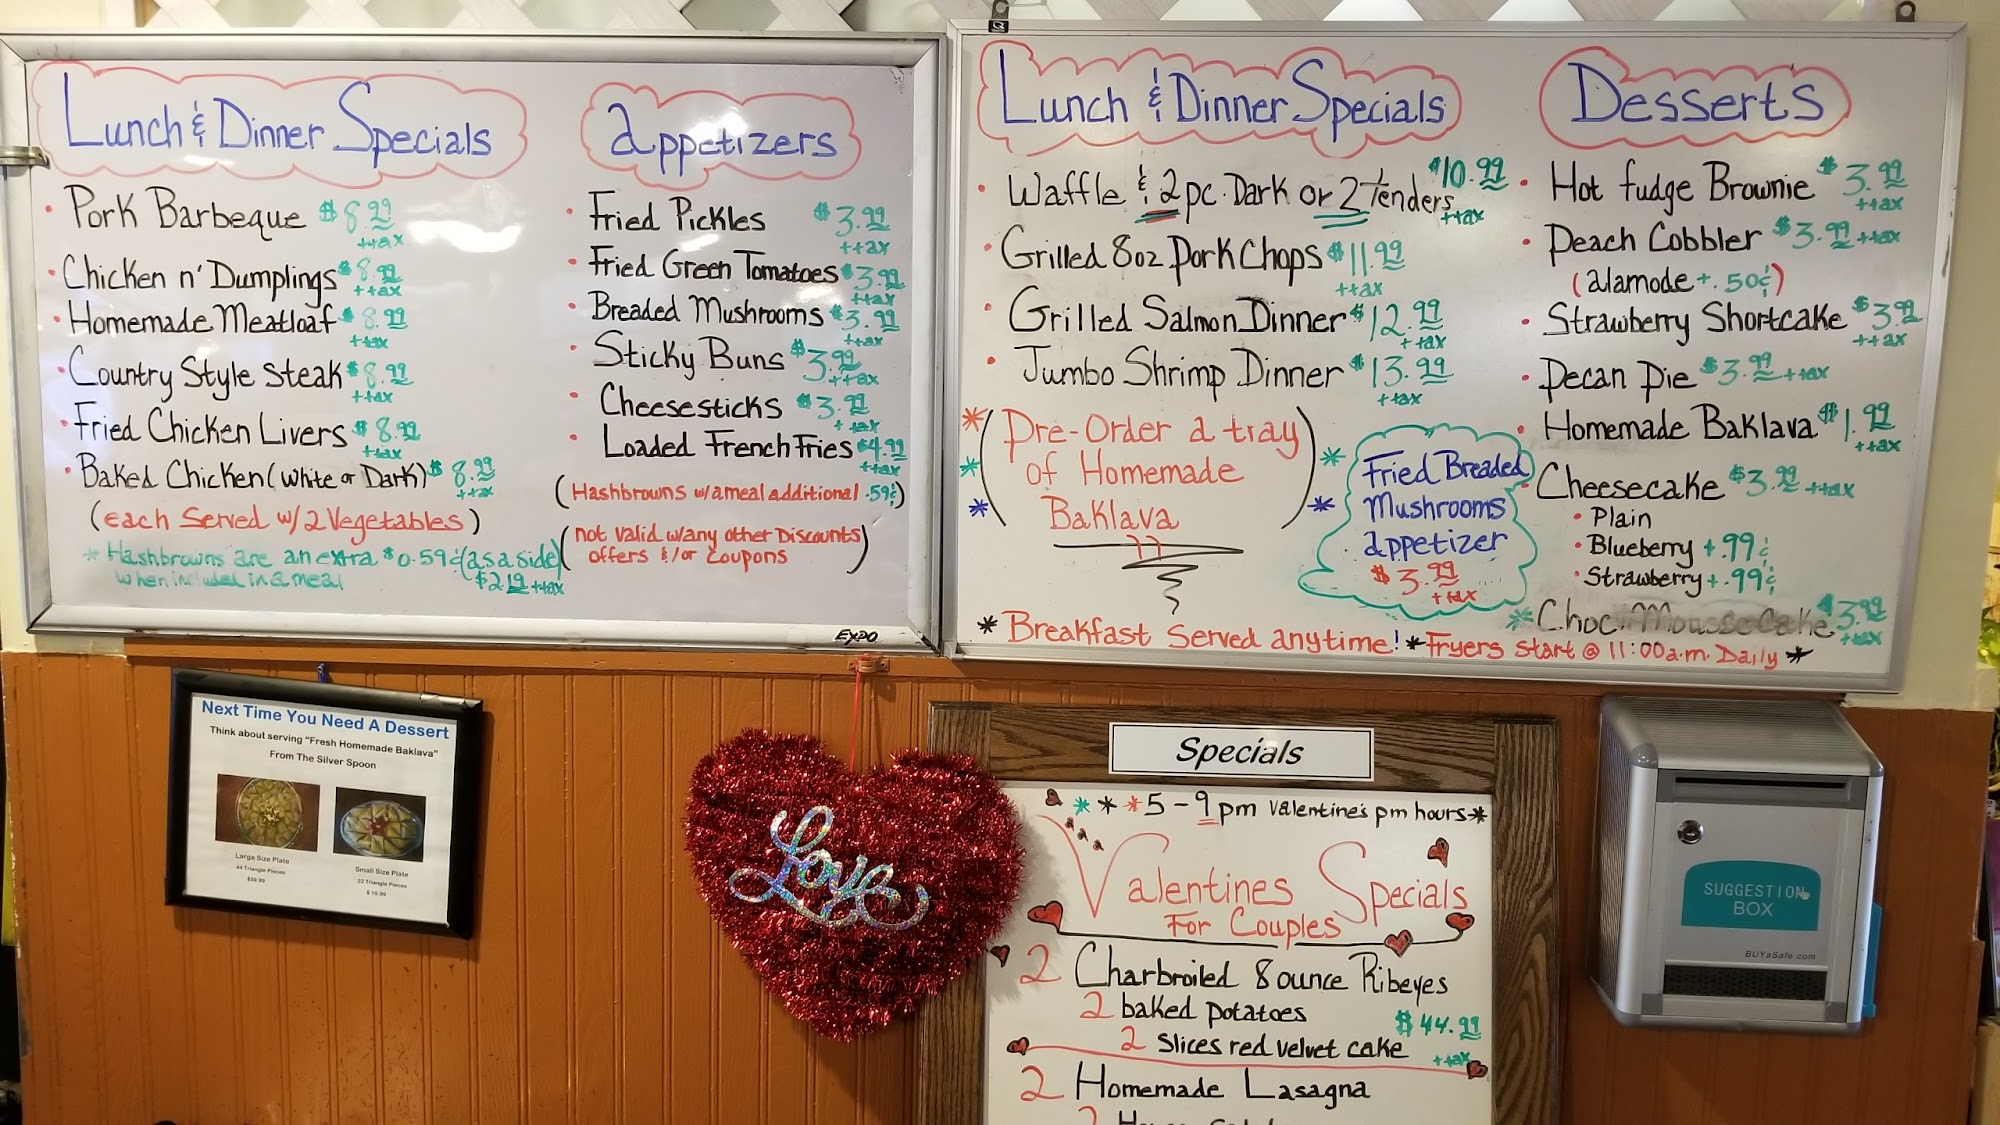 Lunch & Dinner Specials
• Pork Barbeque $8.99 ++ax
• Chicken n' Dumplings $8.99 ++ax
• Homemade Meatloaf $8.99 ++ax
• Country Style Steak $8.99 ++ax
• Fried Chicken Livers $8.99 ++ax
• Baked Chicken (White or Dark) $8.99 ++ax
(each Served w/2 Vegetables)
* Hashbrowns are an extra $0.59¢ (as a side)
when included in a meal $2.19 ++ax
appetizers
• Fried Pickles $3.99 ++ax
• Fried Green Tomatoes $3.99 ++ax
• Breaded Mushrooms $3.99 ++ax
• Sticky Buns $3.99 ++ax
• Cheesesticks $3.99 +tax
• Loaded French Fries $4.99 ++ax
(Hashbrowns w/a meal additional .59¢)
(not valid w/any other Discounts
offers &/or Coupons)
EXPO
Lunch & Dinner Specials
• Waffle & 2 pc. Dark or 2 Tenders $10.99 ++ax
• Grilled 8oz Pork Chops $11.99 ++ax
• Grilled Salmon Dinner $12.99 ++ax
• Jumbo Shrimp Dinner $13.99 ++ax
* (Pre-Order a tray) *
* of Homemade
* Baklava *
Fried Breaded
Mushrooms
appetizer
$3.99
++ax
Desserts
• Hot fudge Brownie $3.99 ++ax
• Peach Cobbler $3.99 ++ax
(alamode +.50¢)
• Strawberry Shortcake $3.99 ++ax
• Pecan Pie $3.99 ++ax
• Homemade Baklava $1.99 ++ax
• Cheesecake $3.99 ++ax
• Plain
• Blueberry +.99¢
• Strawberry +.99¢
* Choc. Mousse Cake $3.99 ++ax
* Breakfast Served anytime! * Fryers Start @ 11:00 a.m. Daily *
Next Time You Need A Dessert
Think about serving "Fresh Homemade Baklava"
From The Silver Spoon
Large Size Plate
44 Triangle Pieces
$39.99
Small Size Plate
22 Triangle Pieces
$19.99
Love
Specials
* * * 5 - 9 pm Valentine's pm hours *
Valentines Specials
For Couples
2 Charbroiled 8 ounce Ribeyes
2 baked potatoes
2 Slices red velvet cake $44.99 ++ax
2 Homemade Lasagna
SUGGESTION
BOX
BUYaSafe.com